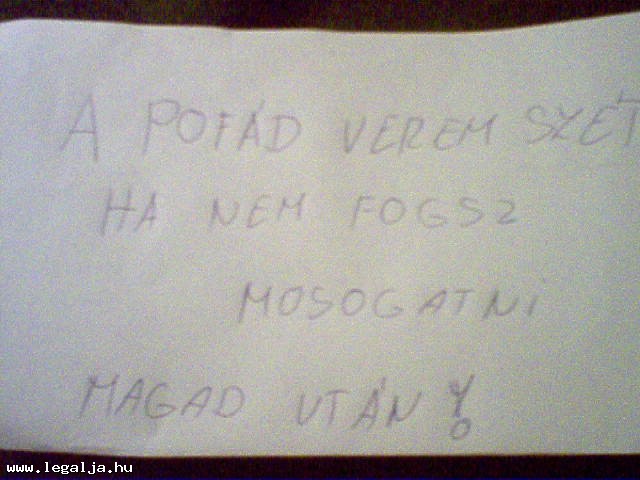 A POFÁD VEREM SZÉT
HA NEM FOGSZ
MOSOGATNI
MAGAD UTÁN!
www.legalja.hu